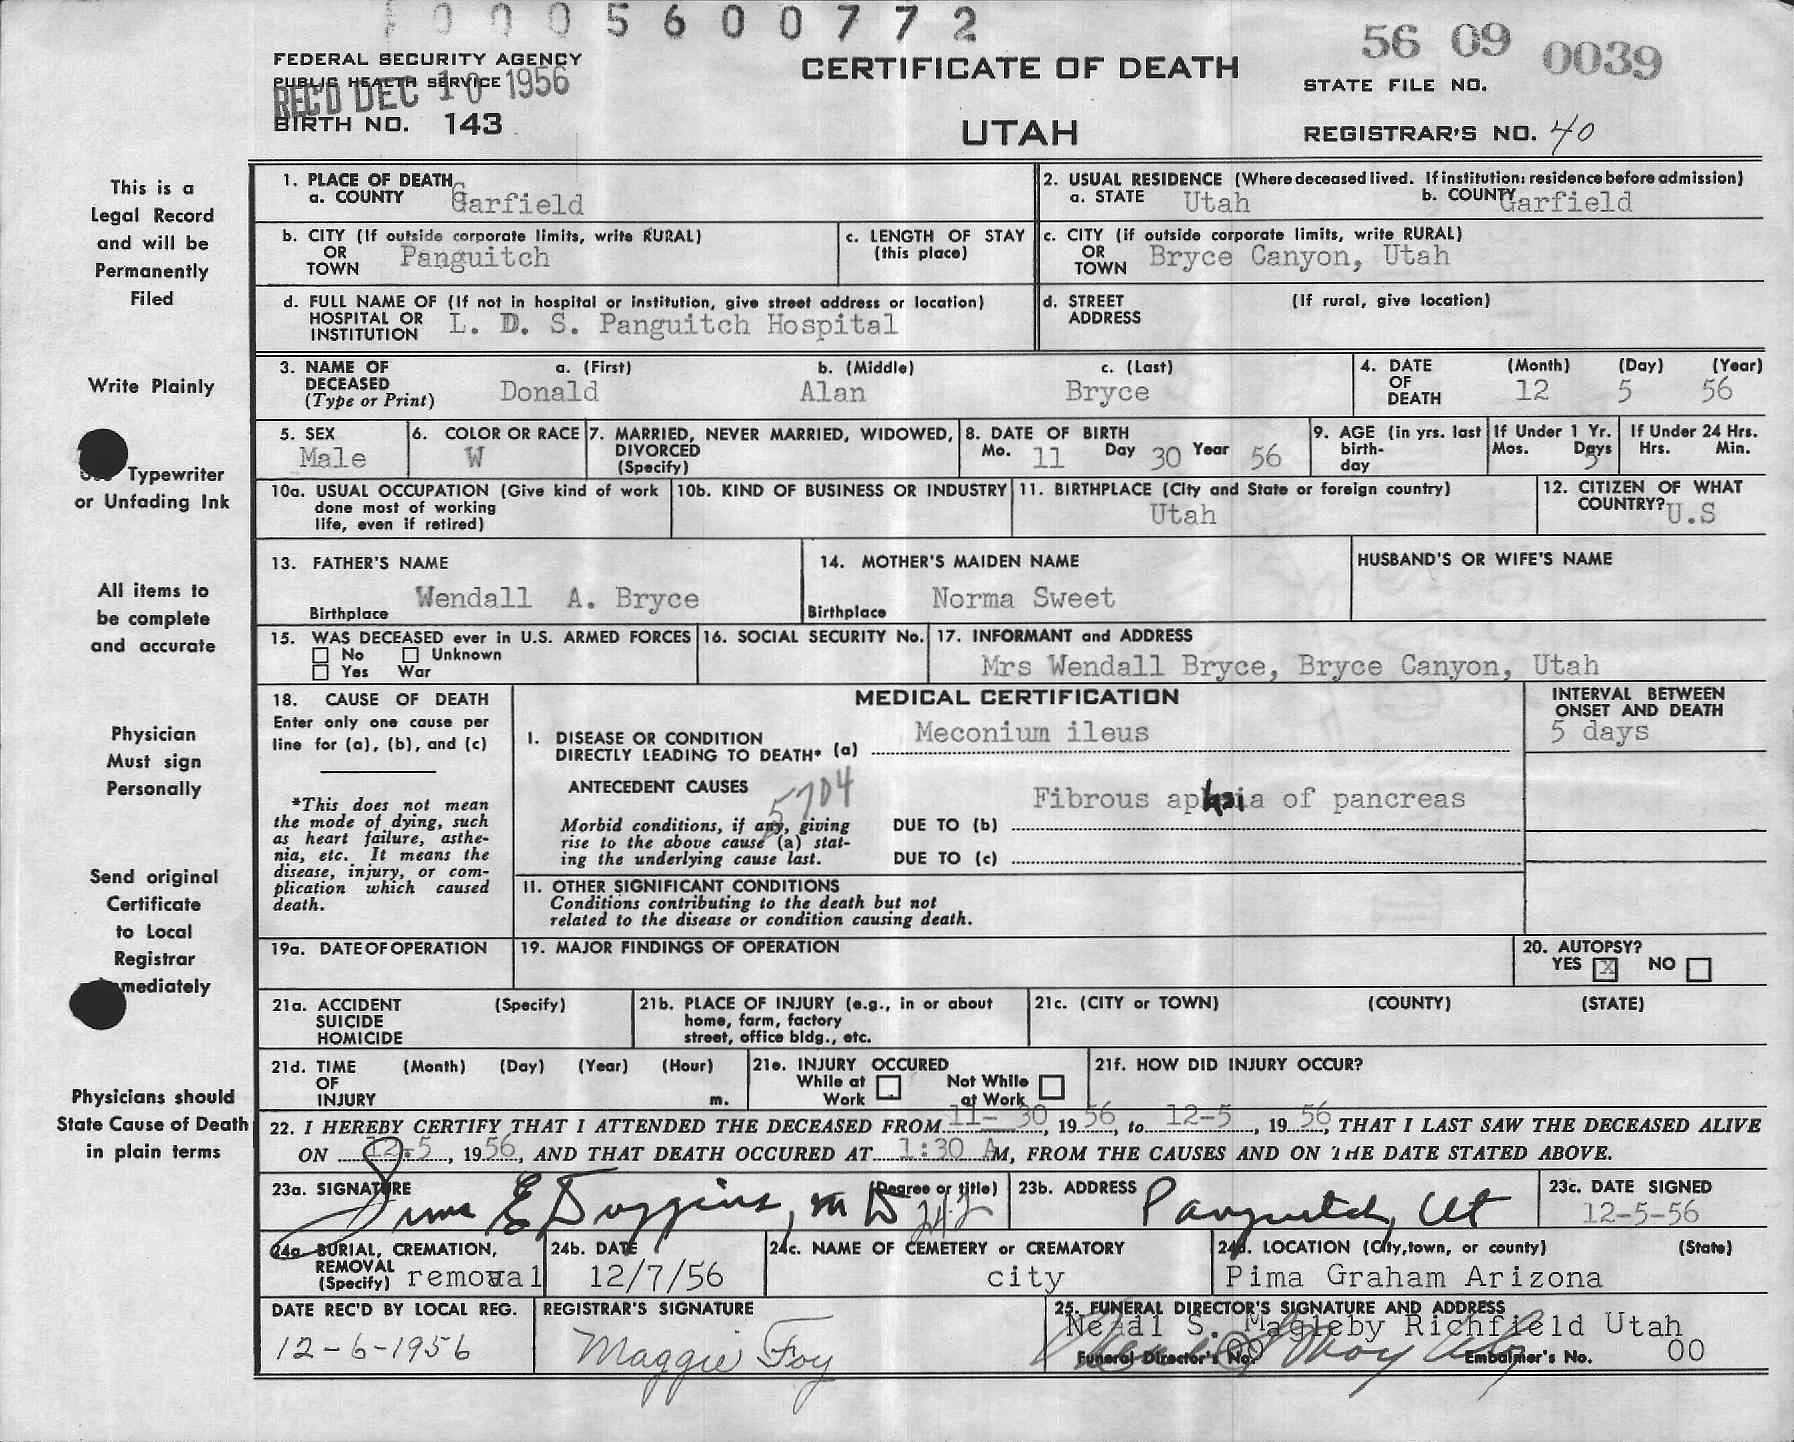 0 0 0 5 6 0 0 7 7 2
56 09 0039
FEDERAL SECURITY AGENCY
PUBLIC HEALTH SERVICE
REC'D DEC 10 1956
BIRTH NO. 143
CERTIFICATE OF DEATH
UTAH
STATE FILE NO.
REGISTRAR'S NO. 40
This is a
Legal Record
and will be
Permanently
Filed
Write Plainly
Typewriter
or Unfading Ink
All items to
be complete
and accurate
Physician
Must sign
Personally
Send original
Certificate
to Local
Registrar
mediately
Physicians should
State Cause of Death
in plain terms
1. PLACE OF DEATH
a. COUNTY Garfield
2. USUAL RESIDENCE (Where deceased lived. If institution: residence before admission)
a. STATE Utah b. COUNTY Garfield
b. CITY (If outside corporate limits, write RURAL)
OR
TOWN Panguitch
c. LENGTH OF STAY
(this place)
c. CITY (if outside corporate limits, write RURAL)
OR
TOWN Bryce Canyon, Utah
d. FULL NAME OF (If not in hospital or institution, give street address or location)
HOSPITAL OR
INSTITUTION L. D. S. Panguitch Hospital
d. STREET (If rural, give location)
ADDRESS
3. NAME OF a. (First) b. (Middle) c. (Last)
DECEASED
(Type or Print) Donald Alan Bryce
4. DATE (Month) (Day) (Year)
OF
DEATH 12 5 56
5. SEX
Male
6. COLOR OR RACE
W
7. MARRIED, NEVER MARRIED, WIDOWED,
DIVORCED
(Specify)
8. DATE OF BIRTH
Mo. 11 Day 30 Year 56
9. AGE (in yrs. last
birth-
day
If Under 1 Yr.
Mos. Days
5
If Under 24 Hrs.
Hrs. Min.
10a. USUAL OCCUPATION (Give kind of work
done most of working
life, even if retired)
10b. KIND OF BUSINESS OR INDUSTRY
11. BIRTHPLACE (City and State or foreign country)
Utah
12. CITIZEN OF WHAT
COUNTRY? U.S
13. FATHER'S NAME
Wendall A. Bryce
Birthplace
14. MOTHER'S MAIDEN NAME
Norma Sweet
Birthplace
HUSBAND'S OR WIFE'S NAME
15. WAS DECEASED ever in U.S. ARMED FORCES
No Unknown
Yes War
16. SOCIAL SECURITY No.
17. INFORMANT and ADDRESS
Mrs Wendall Bryce, Bryce Canyon, Utah
18. CAUSE OF DEATH
Enter only one cause per
line for (a), (b), and (c)
*This does not mean
the mode of dying, such
as heart failure, asthe-
nia, etc. It means the
disease, injury, or com-
plication which caused
death.
MEDICAL CERTIFICATION
I. DISEASE OR CONDITION
DIRECTLY LEADING TO DEATH* (a) Meconium ileus
ANTECEDENT CAUSES
5704
Morbid conditions, if any, giving
rise to the above cause (a) stat-
ing the underlying cause last.
DUE TO (b) Fibrous of pancreas
DUE TO (c)
II. OTHER SIGNIFICANT CONDITIONS
Conditions contributing to the death but not
related to the disease or condition causing death.
INTERVAL BETWEEN
ONSET AND DEATH
5 days
19a. DATE OF OPERATION
19. MAJOR FINDINGS OF OPERATION
20. AUTOPSY?
YES X NO
21a. ACCIDENT (Specify)
SUICIDE
HOMICIDE
21b. PLACE OF INJURY (e.g., in or about
home, farm, factory
street, office bldg., etc.
21c. (CITY or TOWN) (COUNTY) (STATE)
21d. TIME (Month) (Day) (Year) (Hour)
OF
INJURY m.
21e. INJURY OCCURED
While at Work Not While at Work
21f. HOW DID INJURY OCCUR?
22. I HEREBY CERTIFY THAT I ATTENDED THE DECEASED FROM 11-30, 19 56, to 12-5, 19 56, THAT I LAST SAW THE DECEASED ALIVE
ON 12-5, 19 56, AND THAT DEATH OCCURED AT 1:30 AM, FROM THE CAUSES AND ON THE DATE STATED ABOVE.
23a. SIGNATURE (Degree or title)
Sims E Duggins, M D
242
23b. ADDRESS Panguitch, Ut
23c. DATE SIGNED
12-5-56
24a. BURIAL, CREMATION,
REMOVAL
(Specify) removal
24b. DATE
12/7/56
24c. NAME OF CEMETERY or CREMATORY
city
24d. LOCATION (City, town, or county) (State)
Pima Graham Arizona
DATE REC'D BY LOCAL REG.
12-6-1956
REGISTRAR'S SIGNATURE
Maggie Foy
25. FUNERAL DIRECTOR'S SIGNATURE AND ADDRESS
Neal S. Magleby Richfield Utah
Funeral Director's No. Embalmer's No. 00